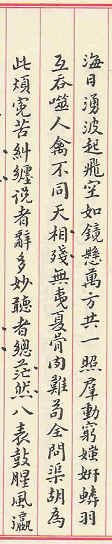 海日湧波起飛空如鏡懸萬方共一照羣動窮媸妍鱗羽
互吞噬人禽不同天相殘無夷夏骨肉難苟全問渠胡為
此煩冤苦糾纏説者辭多妙聽者總茫然八表鼓腥風瀛